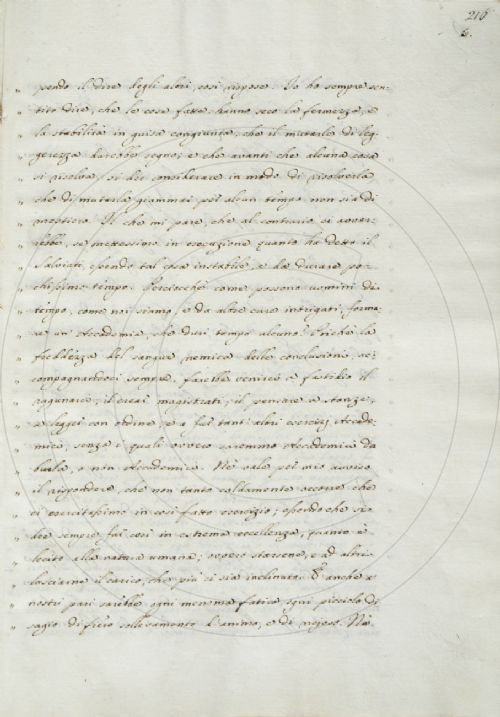 216
6.
" pendo il dire degli altri, così rispose. Io ho sempre sen-
" tito dire, che le cose fatte hanno seco la fermezza, e
" la stabilità in guisa congiunta, che il mutarle di leg-
" gerezza darebbe segno; e che avanti che alcuna cosa
" si risolva, si dee considerare in modo di risolverla
" che di mutarla giammai poi alcun tempo non sia di
" mestiero. Il che mi pare, che al contrario ci avver-
" rebbe, se mettessimo in esecuzione quanto ha detto il
" Salviati, essendo tal cosa instabile, e da durare po-
" chissimo tempo. Perciocchè come possono uomini di
" tempo, come noi siamo, e da altre cure intrigati, forma-
" re un' Accademia, che duri tempo alcuno? Poichè la
" freddezza del sangue nemica delle conclusioni, ac-
" compagnandoci sempre, farebbe venirci a fastidio il
" ragunarci, il crear magistrati, il pensare a stanze,
" a leggi con ordine, e a far tanti altri esercizj Accade-
" mici, senza i quali ovvero saremmo Accademici da
" burla, o non Accademici. Nè vale per mio avviso
" il rispondere, che non tanto caldamente occorre che
" ci esercitassimo in così fatto esercizio; essendo che
" sempre far così in estrema eccellenza, quanto è
" lecito alla natura umana; ovvero starsene, e ad altri
" lasciarne il carico, che più ci sia inclinato. anche a
" nostri pari sarebbe ogni menoma fatica, ogni picciolo di-
" sagio di fiero sollevamento d'animo, e di nojoso. Nè